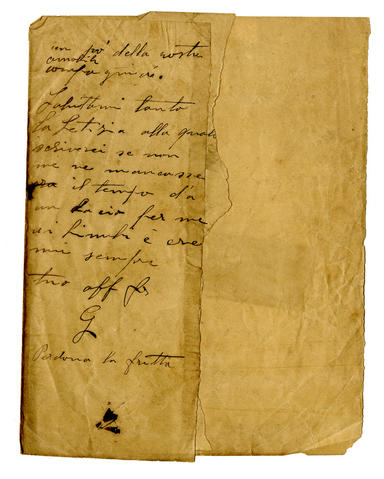 un po' della vostra
amabile
compagnia.
Salutami tanto
la Letizia alla quale
scriverei se non
me ne mancasse
il tempo dà
un bacio per me
ai bimbi e
sempre
tuo aff
G
Perdona la fretta